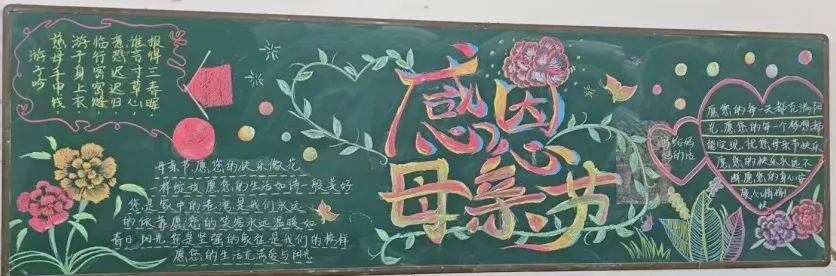 游子吟
慈母手中线,
游子身上衣
临行密密缝
意恐迟迟归,
谁言寸草心,
报得三春晖
感恩
母亲节
母亲节,愿您的快乐像花
一样绽放,愿您的生活如诗一般美好
您是家中的港湾是我们永远
的依靠愿您的笑容永远温暖如
春日阳光您是坚强的象征是我们的榜样
愿您的生活充满爱与阳光
写给妈
妈的话
愿您的每一天都充满阳
光,愿您的每一个梦想都
能实现,祝您母亲节快乐
愿您的快乐永远不
愿您的身心安
康心情愉
快